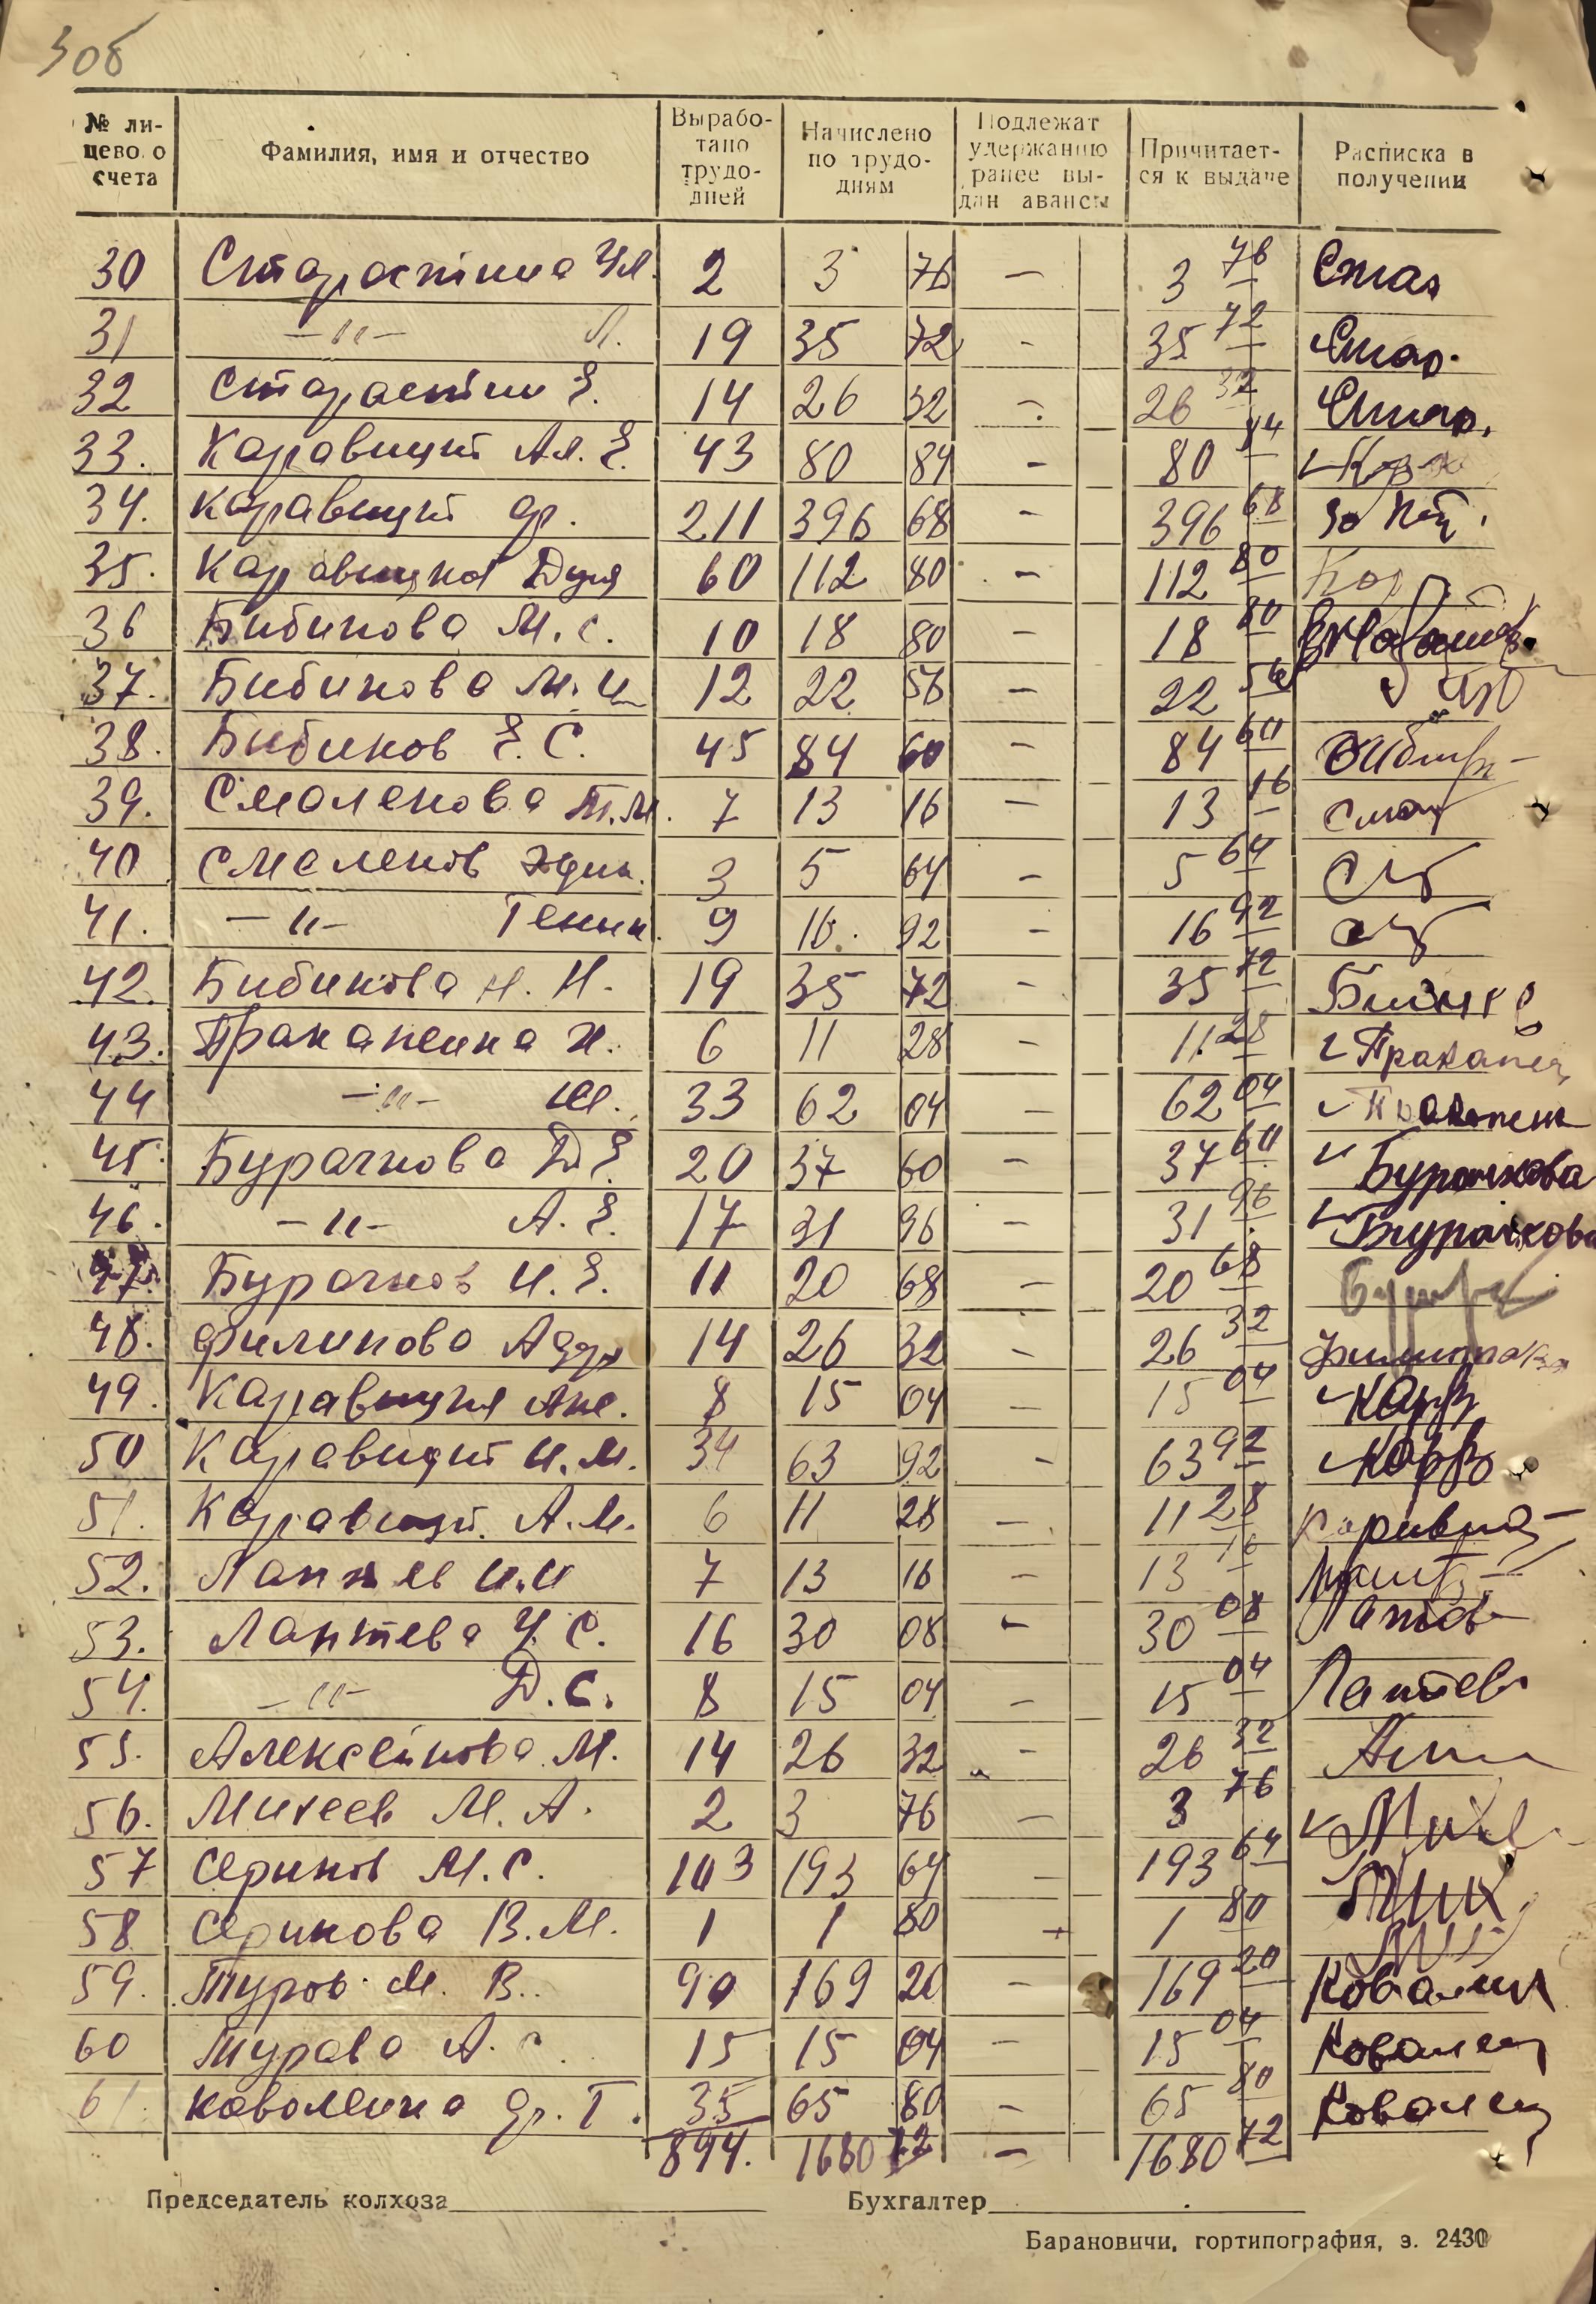 30б
№ ли-
цево.о
счета
Фамилия, имя и отчество
Вырабо-
тано
трудо-
дней
Начислено
по трудо-
дням
Подлежат
удержанию
ранее вы-
дан авансы
Причитает-
ся к выдаче
Расписка в
получении
30 Старостина Ул. 2 3 76 — 3 76 Стар
31 —〃— Л. 19 35 72 - 35 72 Стар.
32 Старостин Е. 14 26 32 - 26 32 Стар.
33. Каравицкий Ал. Е. 43 80 84 - 80 84
34. Каравицкий Ф. 211 396 68 - 396 68
35. Каравицкая Дуня 60 112 80 - 112 80 Кар
36 Бибикова М. С. 10 18 80 - 18 80
37. Бибикова М. И 12 22 56 - 22 56
38. Бибиков Е. С. 45 84 60 - 84 60
39. Смаленова Т.М. 7 13 16 - 13 16 Смал
40 Смаленов 3 5 64 - 5 64
41. —〃— Геник. 9 16. 92 - 16 92
42. Бибикова Н. Н. 19 35 72 - 35 72
43. Пракапенка И. 6 11 28 - 11.28 Пракапен
44 —〃— М. 33 62 04 - 62 04
45. Бурачкова Д Е. 20 37 60 - 37 60 Бурачкова
46. —〃— А. Е. 17 31 96 - 31 96 Бурачкова
47. Бурачков И. Е. 11 20 68 - 20 68
48. Филипова 14 26 32 - 26 32
49. Каравицкая Ане. 8 15 04 - 15 04 Карв
50 Каравицкий И. М. 34 63 92 - 63 92 Карв
51. Каравицк. А. М. 6 11 28 — 11 28
52. Лаптев И.И 7 13 16 - 13 16
53. Лаптева У. С. 16 30 08 - 30 08
54. —〃— Д. С. 8 15 04 - 15 04 Лаптев
55. Алексейкова М. 14 26 32 - 26 32
56. Михеев М. А. 2 3 76 - 3 76
57 Сериков М. С. 103 193 64 - 193 64
58 Серикова В. М. 1 1 80 1 80
59. Туров М. В.. 90 169 20 - 169 20
60 Турава А. С 15 15 04 - 15 04
61. Коволенка Ф. Т. 35 65 80 - 65 80
894. 1680 72 - 1680 72
Председатель колхоза
Бухгалтер
Барановичи, гортипография, з. 2430